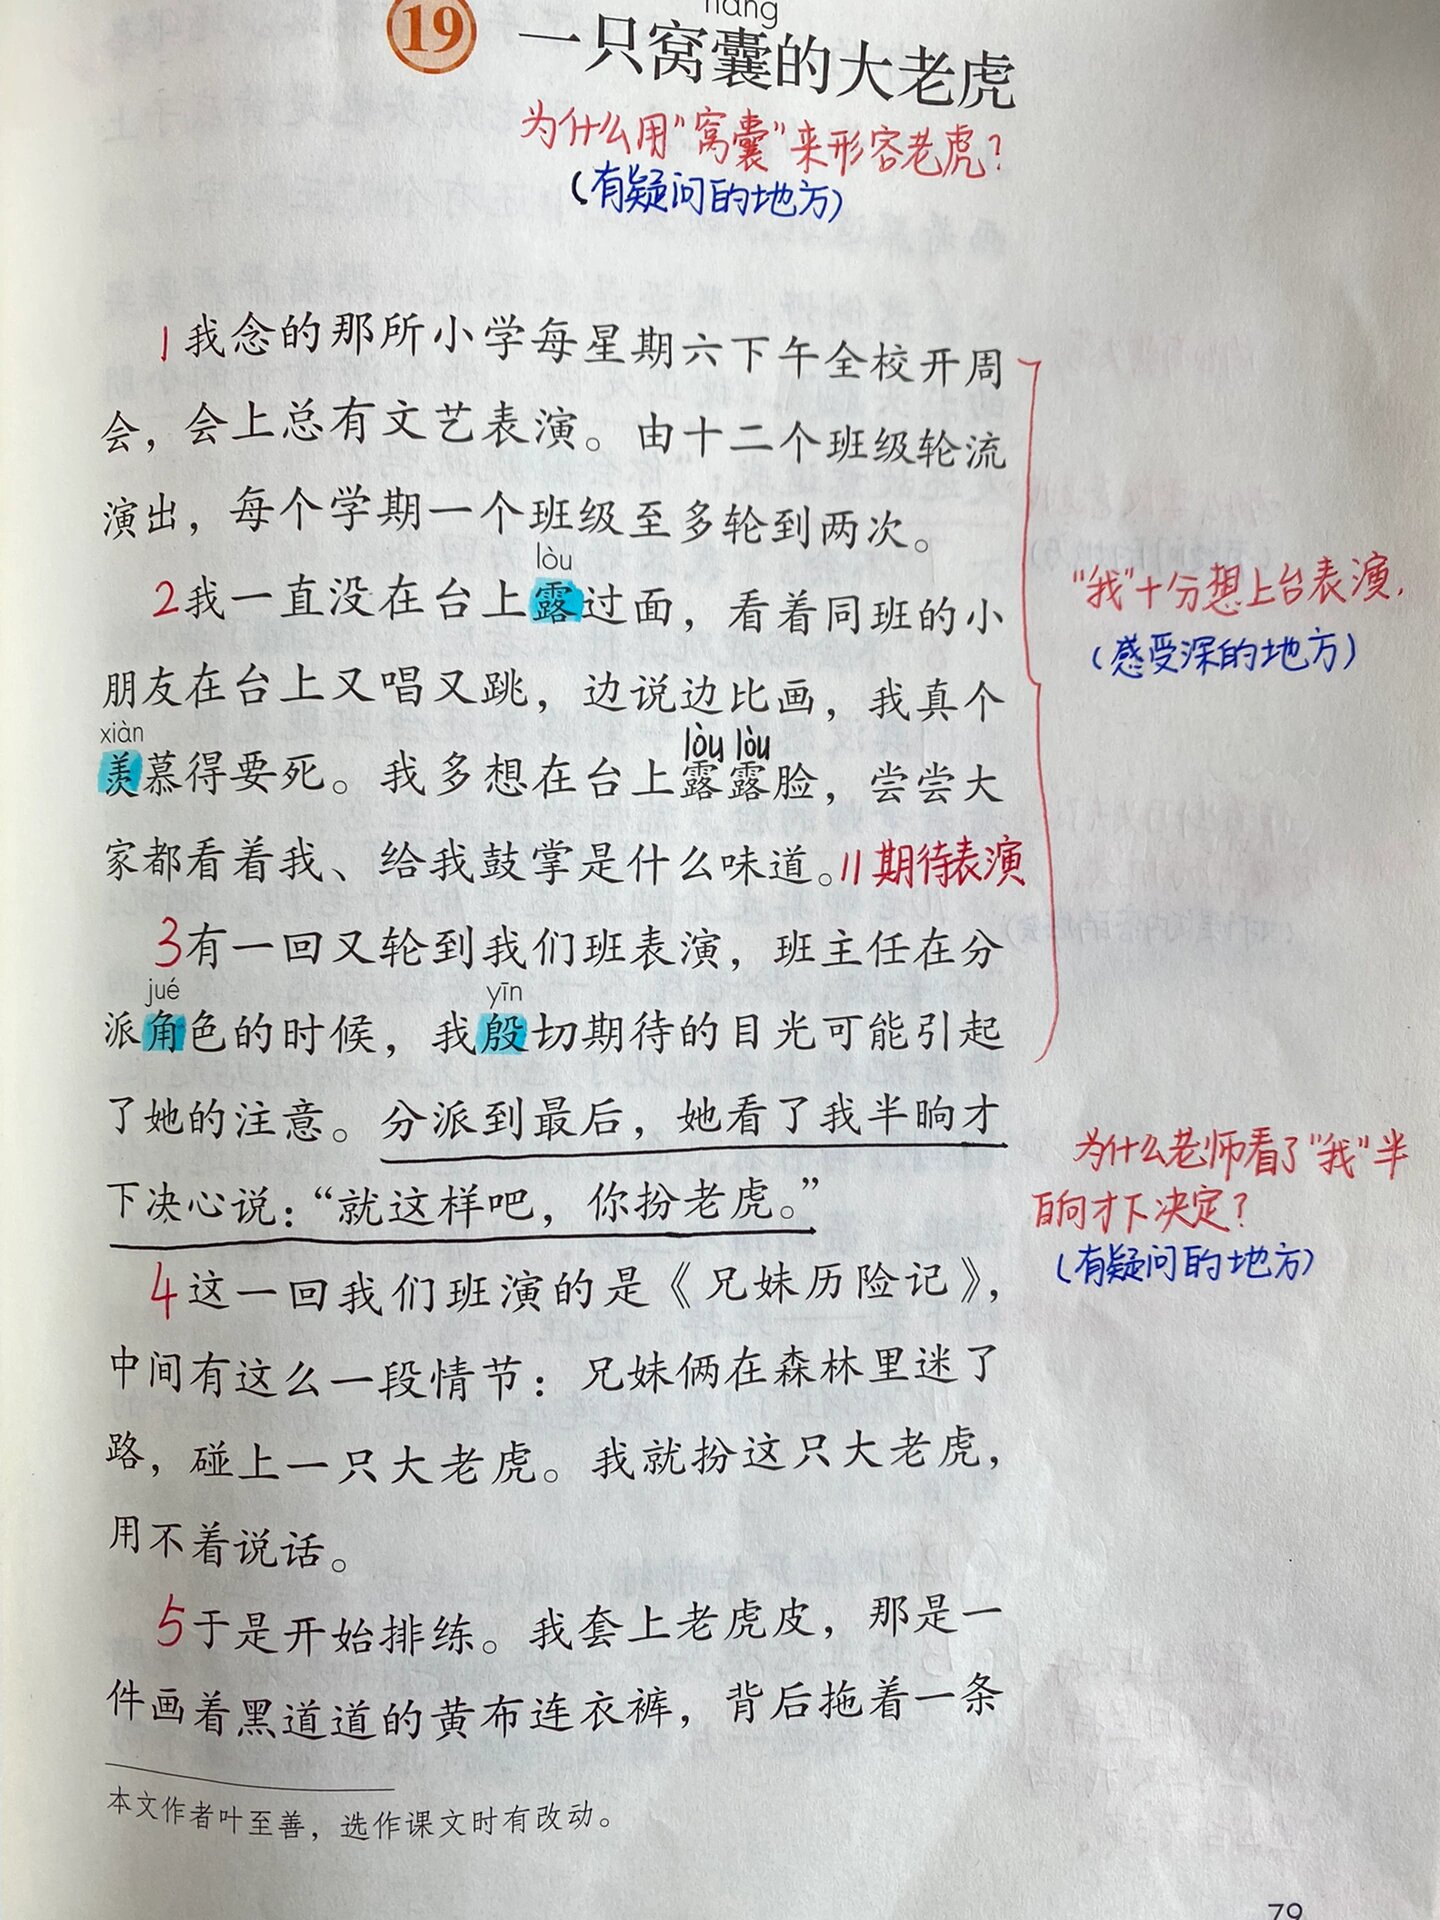 náng
19 一只窝囊的大老虎
为什么用"窝囊"来形容老虎？
（有疑问的地方）
1我念的那所小学每星期六下午全校开周
会，会上总有文艺表演。由十二个班级轮流
演出，每个学期一个班级至多轮到两次。
lòu
2我一直没在台上露过面，看着同班的小
"我"十分想上台表演.
（感受深的地方）
朋友在台上又唱又跳，边说边比画，我真个
xiàn
lòu lòu
羡慕得要死。我多想在台上露露脸，尝尝大
家都看着我、给我鼓掌是什么味道。//期待表演
3有一回又轮到我们班表演，班主任在分
jué yīn
派角色的时候，我殷切期待的目光可能引起
了她的注意。分派到最后，她看了我半晌才
下决心说：“就这样吧，你扮老虎。”
为什么老师看了"我"半
晌才下决定？
（有疑问的地方）
4这一回我们班演的是《兄妹历险记》，
中间有这么一段情节：兄妹俩在森林里迷了
路，碰上一只大老虎。我就扮这只大老虎，
用不着说话。
5于是开始排练。我套上老虎皮，那是一
件画着黑道道的黄布连衣裤，背后拖着一条
本文作者叶至善，选作课文时有改动。
79